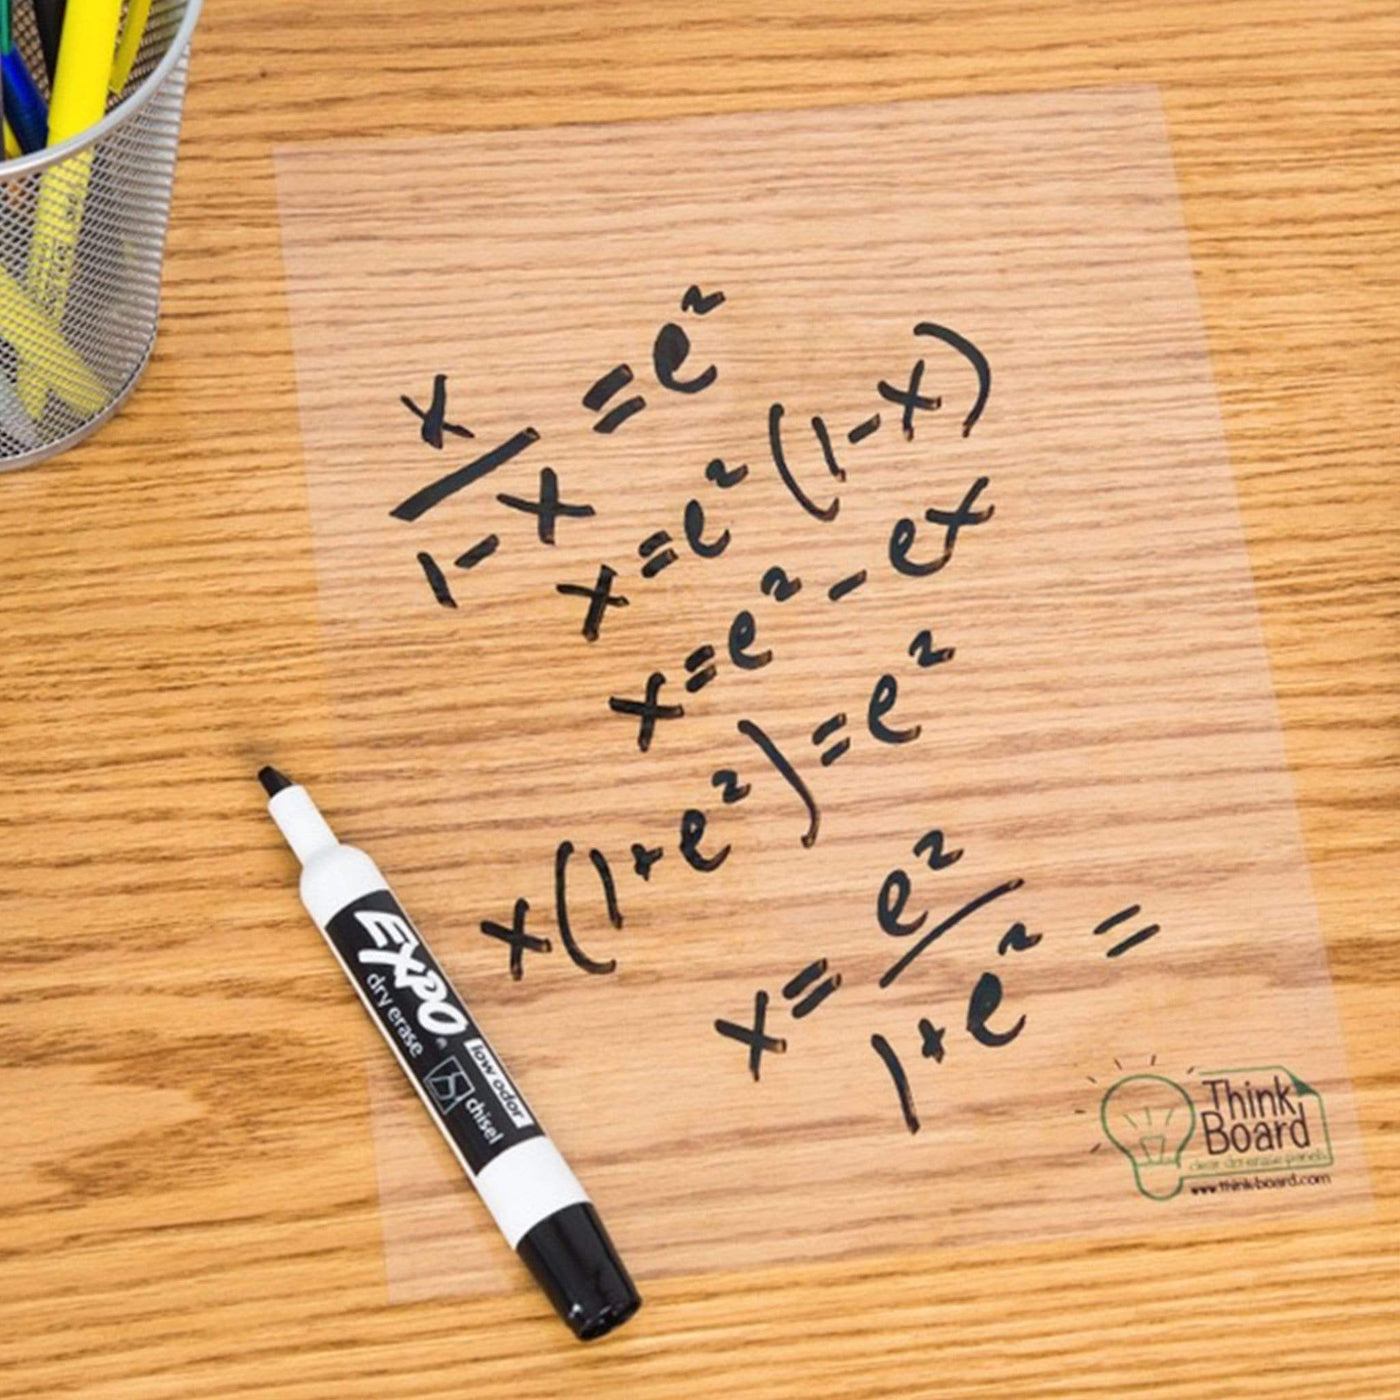 x/1-x = e²
x = e² (1-x)
x = e² - ex
x(1+e²) = e²
x = e²/1+e² =
EXPO
dry erase
low odor
chisel
Think
Board
clear dry erase panels
www.think-board.com